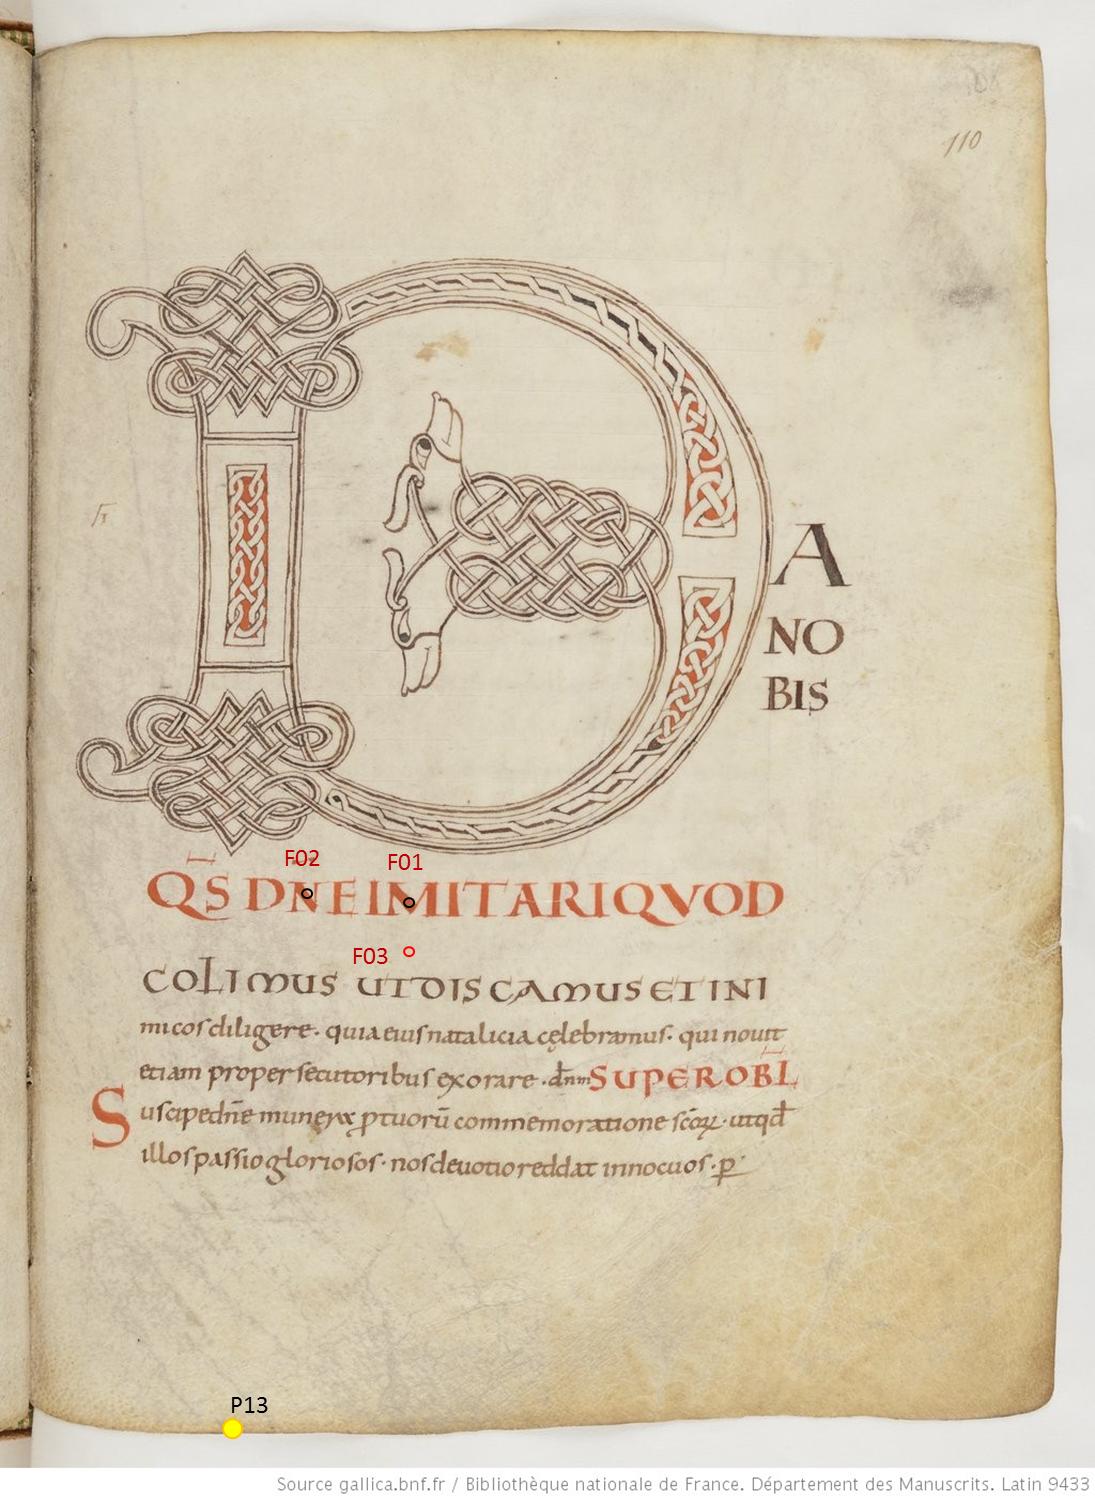 110
DA
NO
BIS
F02 F01
QS DNE IMITARI QVOD
F03
COLIMUS UT DISCAMUS ET INI
micos diligere. quia eius natalicia cęlebramus. qui nouit
etiam pro persecutoribus exorare. dnm SUPER OBL
Suscipe dne munera ptuorū commemoratione scōrꝝ. ut qd
illos passio gloriosos. nos deuotio reddat innocuos. p
P13
Source gallica.bnf.fr / Bibliothèque nationale de France. Département des Manuscrits. Latin 9433